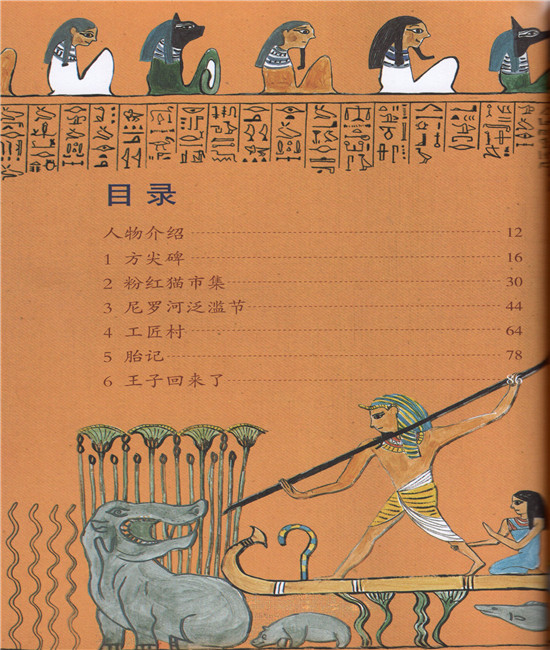 目录
人物介绍 12
1 方尖碑 16
2 粉红猫市集 30
3 尼罗河泛滥节 44
4 工匠村 64
5 胎记 78
6 王子回来了 86